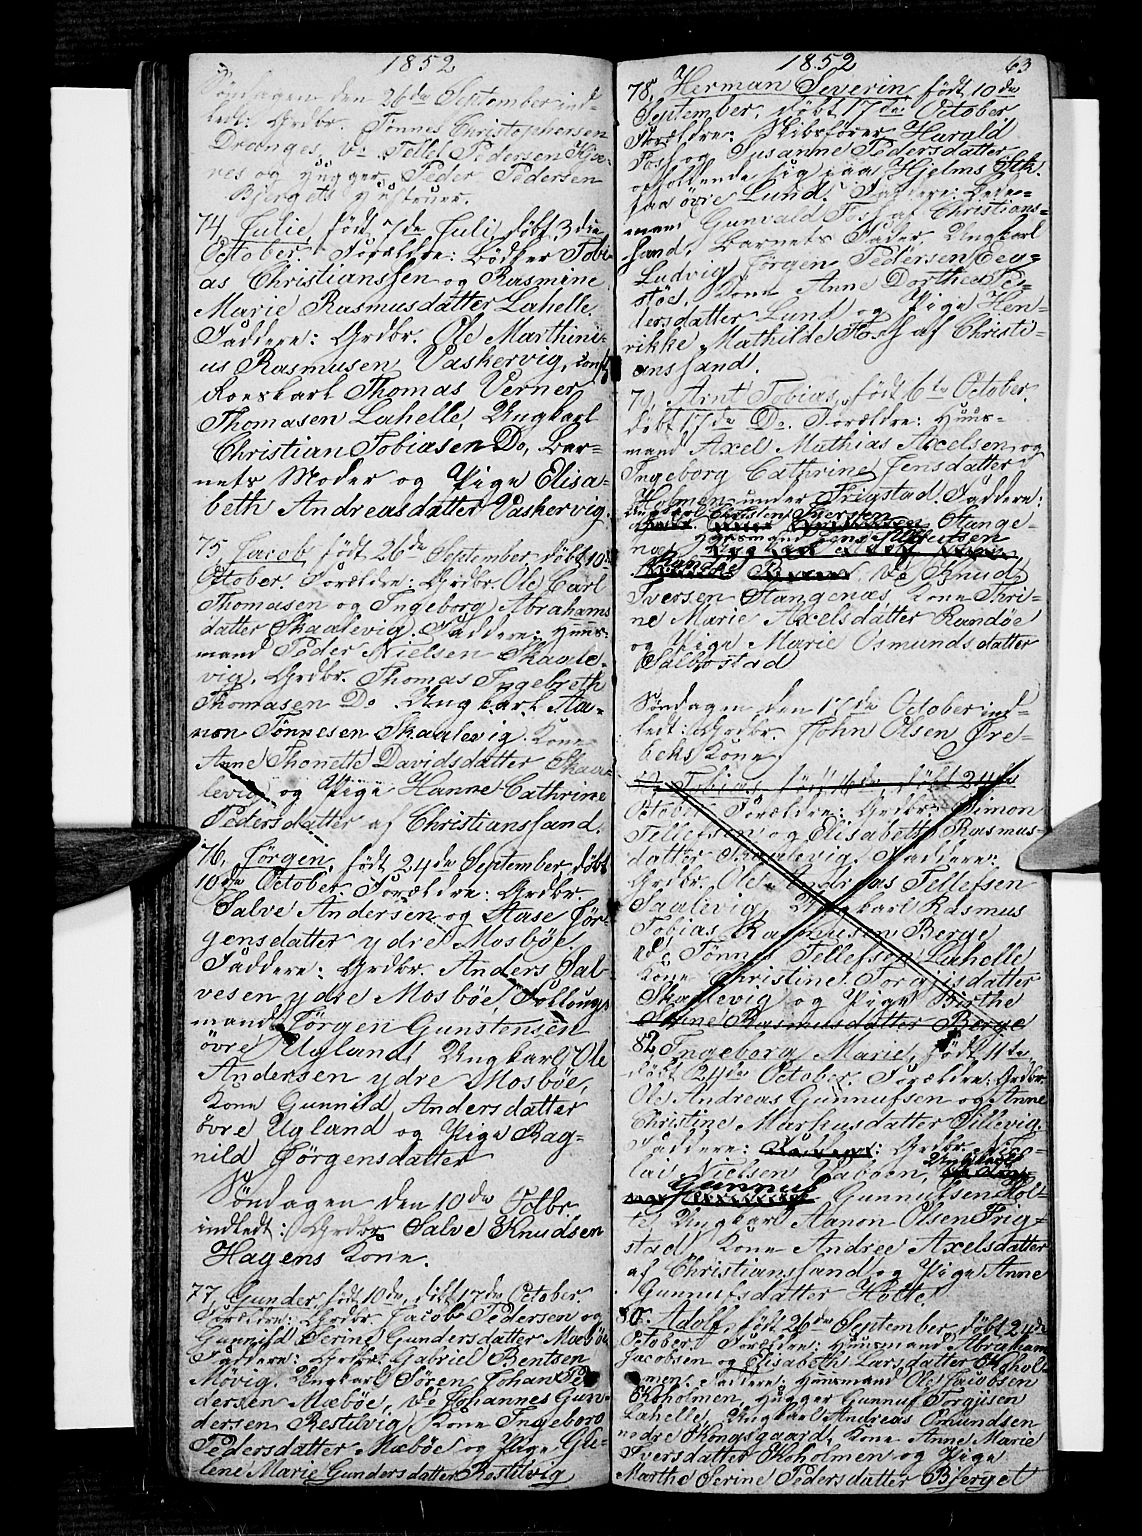 1852
Søndagen den 26de September ind-
ledt: Grdbr. Tønnes Christophersen
Drangес, Do Tellef Pedersen
og Hugger Peder Pedersen
Bjergets Hustruer.
74, Julie født 7de Juli, døbt 3die
October. Forældre: Bødker Tobi-
as Christianssen og Rasmine
Marie Rasmusdatter Lahelle.
Faddere: Grdbr. Ole Marthini-
us Rasmusen Vaskervig,
Thomas Verner
Thomasen Lahelle, Ungkarl
Christian Tobiasen Do, Bar-
nets Moder og Pige Elisa-
beth Andreasdatter Vaskervig.
75, Jacob, født 26de September, døbt 10de
October. Forældre: Grdbr. Ole Carl
Thomasen og Ingeborg Abrahams
datter Skaalevig. Faddere: Huus-
mand Peder Nielsen Skaale-
vig, Grdbr. Thomas Ingebreth
Thomasen Do Ungkarl Aa-
non Tønnesen Skaalevig. Kone
Anne Thonette Davidsdatter Skaa-
levig og Pige Hanne Cathrine
Pedersdatter af Christianssand.
76, Jørgen, født 24de September, døbt
10de October. Forældre: Grdbr.
Salve Andersen og Aase Jør-
gensdatter ydre Mosbøe,
Faddere: Grdbr. Anders Sal-
vesen ydre Mosbøe,
mand Jørgen Gunstensen
øvre Ugland, Ungkarl Ole
Andersen ydre Mosbøe,
Kone Gunnild Andersdatter
øvre Ugland og Pige Rag-
nild Jørgensdatter
Søndagen den 10de Octbr.
indledt: Grdbr. Salve Knudsen
Hagens Kone.
77, Gunder, født 10de, døbt 17de October
Forældre: Grdbr. Jacob Pedersen og
Gunnild Serine Gundersdatter Mæbøe
Faddere: Gabriel Bentsen
Møvig. Ungkarl Søren Johan Pe-
dersen Mæbøe, Do Johannes Gun-
dersen Restelvig, Kone Ingeborg
Pedersdatter Mæbøe og Pige He-
lene Marie Gundersdatter Restelvig
1852 63
78, Herman Severin, født 10de
September, døbt 17de October
Forældre: Skibsfører Harald
Foss og Susanne Pedersdatter
opholdende sig paa Hjelms
paa øvre Lund. Faddere:
mand Gunvald Foss af Christians-
sand, Barnets Fader, Ungkarl
Ludvig Jørgen Pedersen
Kone Anne Dorthea Pe-
dersdatter Lund og Pige Hen-
rikke Mathilde Foss af Christi-
anssand.
79, Arnt Tobias, født 6te October,
døbt 17de Do. Forældre: Huus-
mand Axel Mathias Axelsen og
Ingeborg Cathrine Jensdatter
Holmen under Frigstad. Faddere:
Ungkarl Christen Iversen
Stange-
næs, Huusmand
Randøe Do Knud
Iversen Stangenæs, Kone Thri-
ne Marie Axelsdatter Randøe
og Pige Marie Osmundsdatter
Salbostad
Søndagen den 17de October ind-
ledt: Grdbr. John Olsen Øre-
beks Kone.
Tobias, født 16de, døbt 24de
October Forældre: Grdbr. Simon
Tellefsen og Elisabeth Rasmus-
datter Skaalevig. Faddere:
Grdbr. Ole Andreas Tellefsen
Saalevig, Ungkarl Rasmus
Tobias Rasmusen Berge
Do Tønnes Tellefsen Lahelle
Kone Christine Torgisdatter
Skaalevig og Pige Birthe
Serine Rasmusdatter Berge
82, Ingeborg Marie, født 11te
døbt 24de October. Forældre: Grdbr.
Ole Andreas Gunnufsen og Anne
Christine Markusdatter Sillevig.
Faddere: Grdbr. Nico-
lai Nielsen Vaboen, Ungkarl
Gunnuf Gunnufsen Hol-
tet, Ungkarl Aanon Olsen Frig-
stad, Kone Andree Axelsdatter
af Christianssand og Pige Anne
Gunnufsdatter Holtet
80, Adolf, født 26de September, døbt 24de
October. Forældre: Huusmand Abraham
Jacobsen og Elisabeth Larsdatter Skohol-
men. Faddere: Huusmand Ole Jacobsen
Skoholmen, Hugger Gunnuf Torgjusen
Lahelle, Ungkarl Andreas Omundsen
nedre Kongsgaard, Kone Anne Marie
Iversdatter Skoholmen og Pige
Marthe Serine Pedersdatter Bjerget